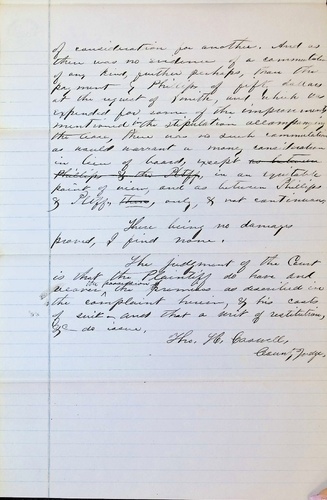 of consideration for another. And as
there was no evidence of a commutation
of any kind, further perhaps, than the
payment by Phillips of fifty dollars
at the request of Smith, and which was
expended for some of the improvements
mentioned in the stipulation accompanying
the case, there was no such commutation
as would warrant a money consideration
in lieu of board, except as between
Phillips & the Plff, in an equitable
point of view, and as between Phillips
& Plff, only, & not continuous
There being no damages
proved, I find none.
The Judgment of the Court
is that the Plaintiff do have and
the possession of
recover the premises as described in
the complaint herein, & his costs
of suit — and that a writ of restitution,
&c — do issue.
Thos. H. Caswell,
County Judge,